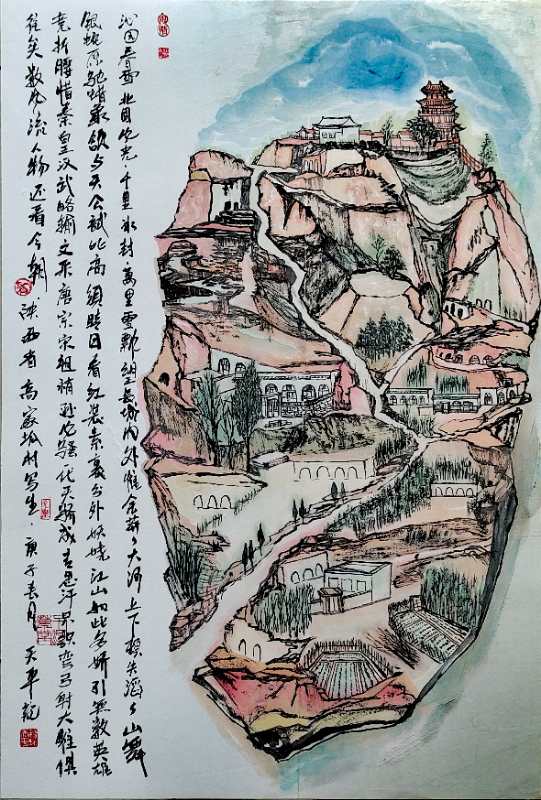 沁园春雪 北国风光千里冰封万里雪飘望长城内外惟余莽々大河上下顿失滔々山舞
银蛇原驰蜡象欲与天公试比高须晴日看红装素裹分外妖娆江山如此多娇引无数英雄
竞折腰惜秦皇汉武略输文采唐宗宋祖稍逊风骚一代天骄成吉思汗只识弯弓射大雕俱
往矣数风流人物还看今朝 陕西省高家 村写生·庚子春月 天平